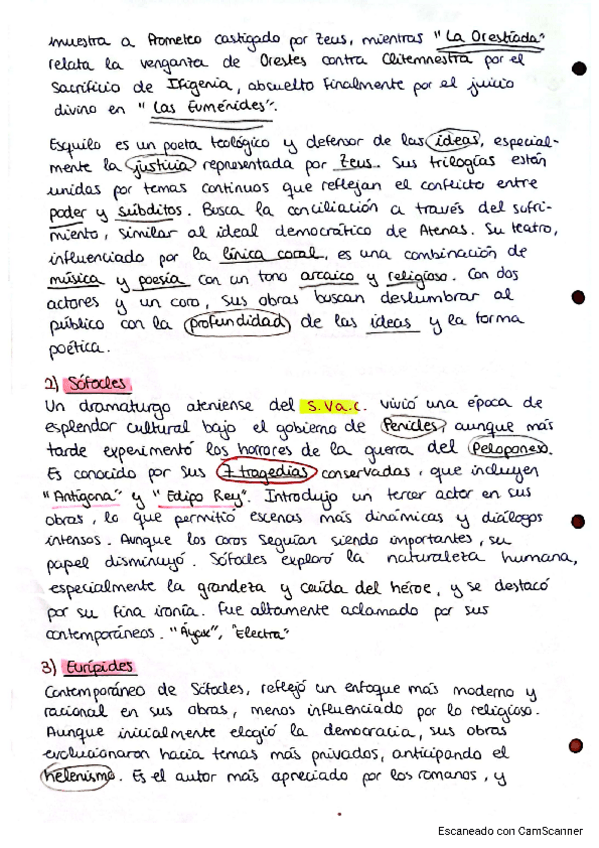 muestra a Prometeo castigado por Zeus, mientras "La Orestíada"
relata la venganza de Orestes contra Clitemnestra por el
sacrificio de Ifigenia, absuelto finalmente por el juicio
divino en "Las Euménides".
Esquilo es un poeta teológico y defensor de las ideas, especial-
mente la justicia representada por Zeus. Sus trilogías están
unidas por temas continuos que reflejan el conflicto entre
poder y súbditos. Busca la conciliación a través del sufri-
miento, similar al ideal democrático de Atenas. Su teatro,
influenciado por la lírica coral, es una combinación de
música y poesía con un tono arcaico y religioso. Con dos
actores y un coro, sus obras buscan deslumbrar al
público con la profundidad de las ideas y la forma
poética.
2) Sófocles
Un dramaturgo ateniense del S.V a.C. vivió una época de
esplendor cultural bajo el gobierno de Pericles, aunque más
tarde experimentó los horrores de la guerra del Peloponeso.
Es conocido por sus 7 tragedias conservadas, que incluyen
"Antígona" y "Edipo Rey". Introdujo un tercer actor en sus
obras, lo que permitió escenas más dinámicas y diálogos
intensos. Aunque los coros seguían siendo importantes, su
papel disminuyó. Sófocles exploró la naturaleza humana,
especialmente la grandeza y caída del héroe, y se destacó
por su fina ironía. Fue altamente aclamado por sus
contemporáneos. "Áyax", "Electra"
3) Eurípides
Contemporáneo de Sófocles, reflejó un enfoque más moderno y
racional en sus obras, menos influenciado por lo religioso.
Aunque inicialmente elogió la democracia, sus obras
evolucionaron hacia temas más privados, anticipando el
helenismo. Es el autor más apreciado por los romanos, y
Escaneado con CamScanner